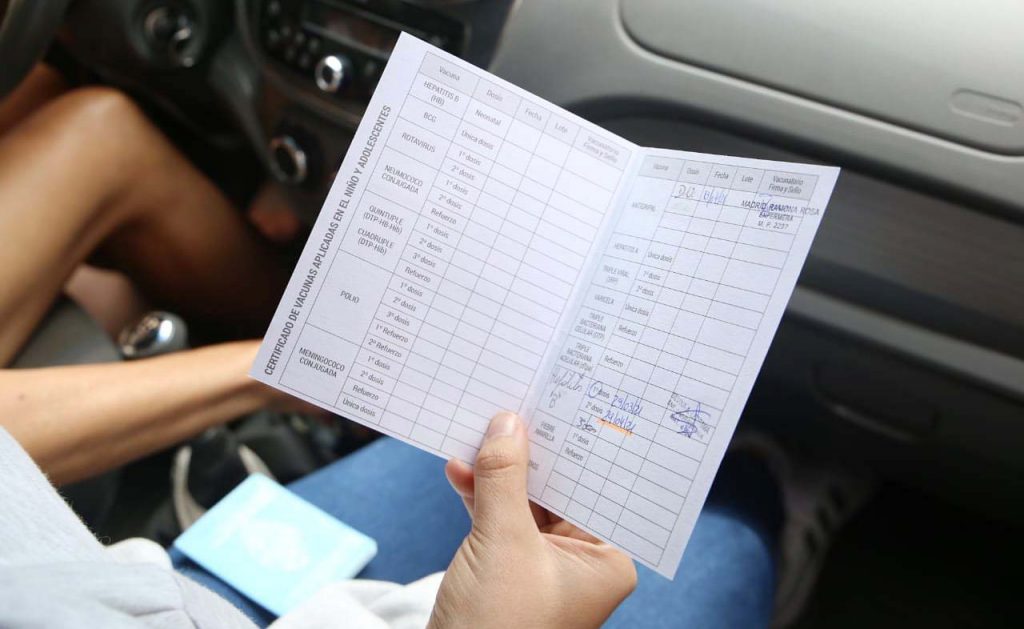 CERTIFICADO DE VACUNAS APLICADAS EN EL NIÑO Y ADOLESCENTES
Vacuna Dosis Fecha Lote Vacunatorio Firma y Sello
HEPATITIS B (HB) Neonatal
BCG Única dosis
ROTAVIRUS 1° dosis
2° dosis
NEUMOCOCO CONJUGADA 1° dosis
2° dosis
Refuerzo
QUINTUPLE (DTP-HB-Hib) 1° dosis
2° dosis
3° dosis
CUADRUPLE (DTP-Hib) Refuerzo
POLIO 1° dosis
2° dosis
3° dosis
1° Refuerzo
2° Refuerzo
MENINGOCOCO CONJUGADA 1° dosis
2° dosis
Refuerzo
Única dosis
Vacuna Dosis Fecha Lote Vacunatorio Firma y Sello
ANTIGRIPAL
MADRID RAMONA ROSA
ENFERMERIA
M. P. 2237
HEPATITIS A Única dosis
TRIPLE VIRAL (SRP) 1° dosis
2° dosis
VARICELA Única dosis
TRIPLE BACTERIANA CELULAR (DTP) Refuerzo
TRIPLE BACTERIANA ACELULAR Refuerzo
B 1° dosis 29/03/21
2° dosis 29/04/21
3°
FIEBRE AMARILLA 1° dosis
Refuerzo